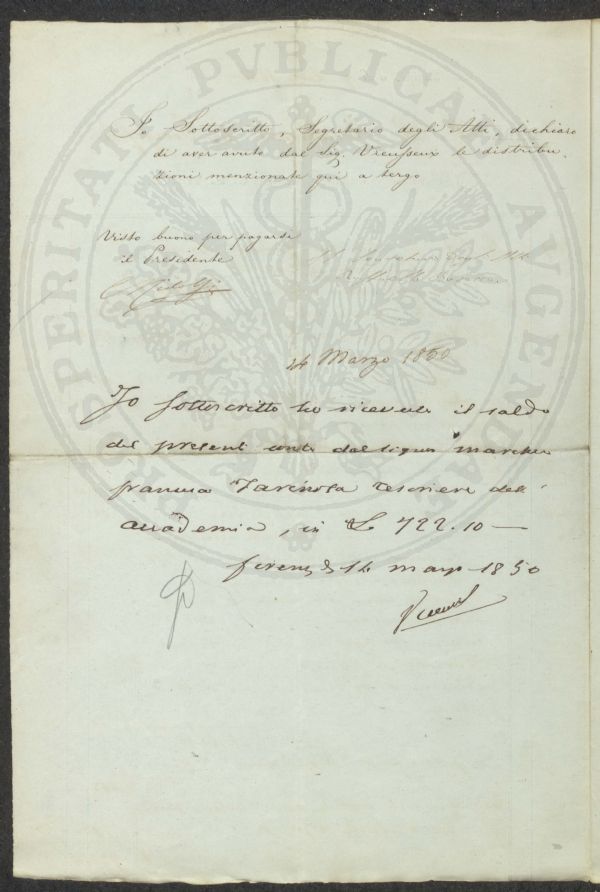 PROSPERITATI PVBLICAE AVGENDAE
Io Sottoscritto, Segretario degli Atti, dichiaro
di aver avuto dal Sig. Vieusseux le distribu-
zioni menzionate qui a tergo
Visto buono per pagarsi
il Presidente
C. Ridolfi
Il Segretario degli Atti
14 Marzo 1850
Io sottoscritto ho ricevuto il saldo
del presente conto dal Signor marchese
Tesoriere dell'
accademia, in £ 722.10 —
firenze 14 marzo 1850
Vieusseux